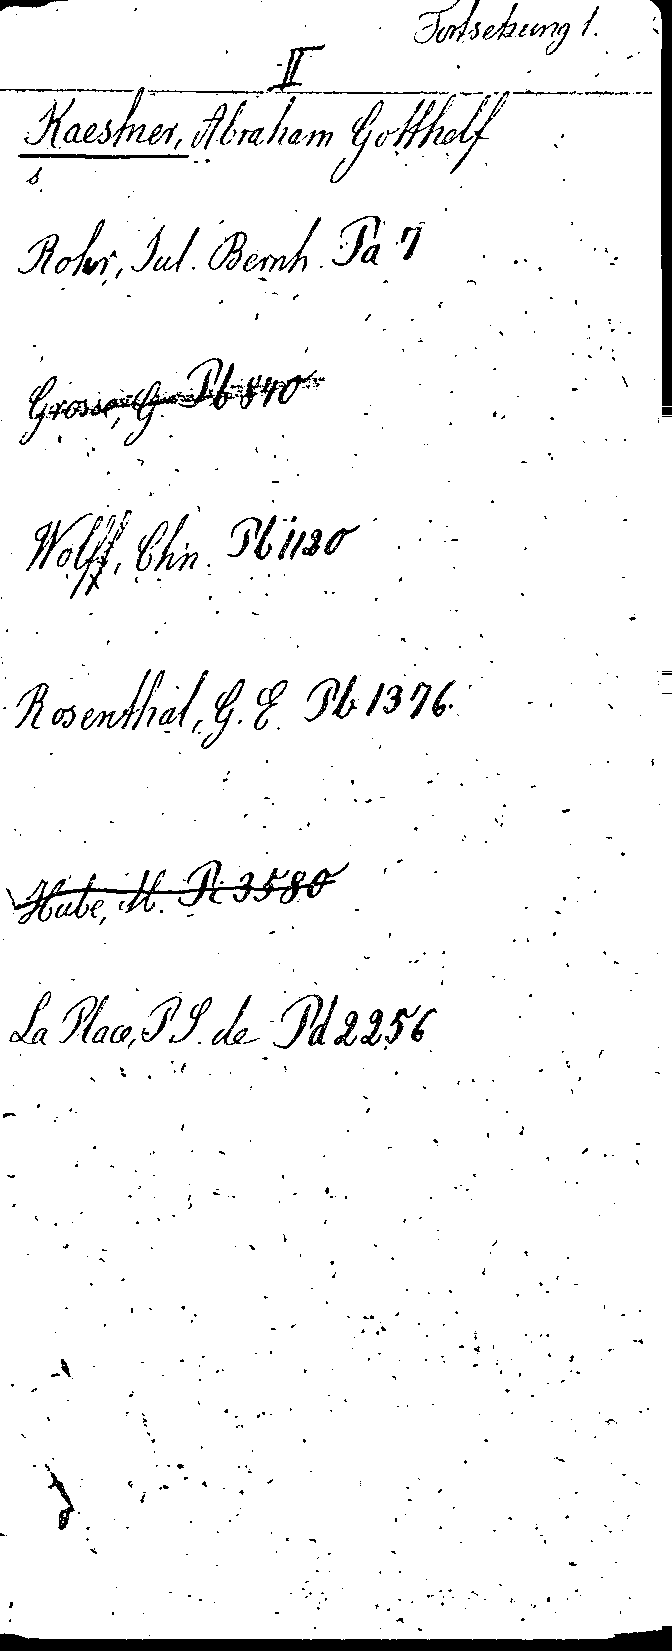 Fortsetzung 1.
II
Kaestner, Abraham Gotthelf
s
Rohr, Jul. Bernh. Pa 7
Grosse, G. Pb 840
Wolff, Chn. Pb 1120
Rosenthal, G. E. Pb 1376.
Hube, M. Pc 3580
La Place, P S. de Pd 2256